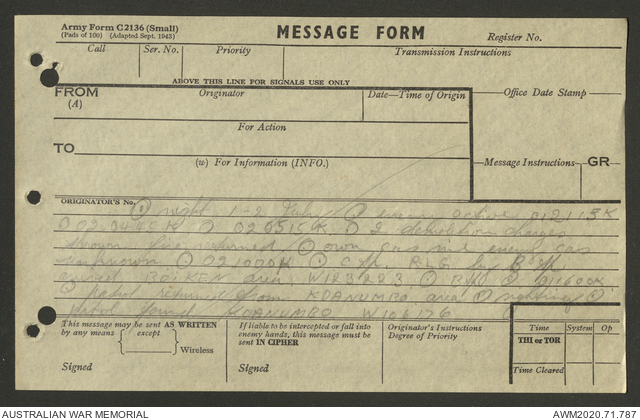 Army Form C2136 (Small)
(Pads of 100) (Adapted Sept. 1943)
MESSAGE FORM
Register No.
Call
Ser. No.
Priority
Transmission Instructions
ABOVE THIS LINE FOR SIGNALS USE ONLY
FROM
(A)
Originator
Date—Time of Origin
Office Date Stamp
For Action
TO
(W) For Information (INFO.)
Message Instructions
GR
ORIGINATOR'S No.
night 1-2 July enemy active 012115K
020445K 020515K 2 demolition charges
thrown fire returned own cas nil enemy cas
unknown 021000K C
arrived BOIKEN area W123223 011600K
patrol returned from KOANUMBO area
patrol found KOANUMBO W106176
This message may be sent AS WRITTEN
by any means
except
Wireless
Signed
If liable to be intercepted or fall into
enemy hands, this message must be
sent IN CIPHER
Signed
Originator's Instructions
Degree of Priority
Time
System
Op
THI or TOR
Time Cleared
AUSTRALIAN WAR MEMORIAL
AWM2020.71.787